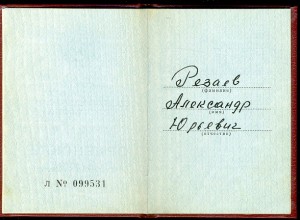 Л № 099531
Резаев
(фамилия)
Александр
(имя)
Юрьевич
(отчество)